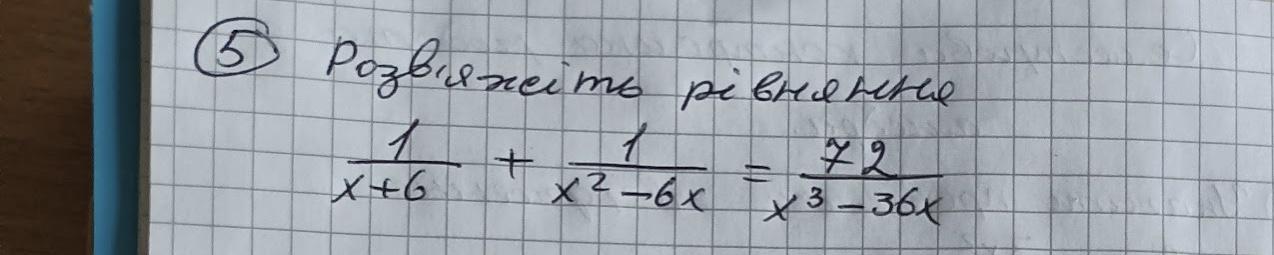 5 Розв'яжіть рівняння
1/(x+6) + 1/(x²-6x) = 72/(x³-36x)